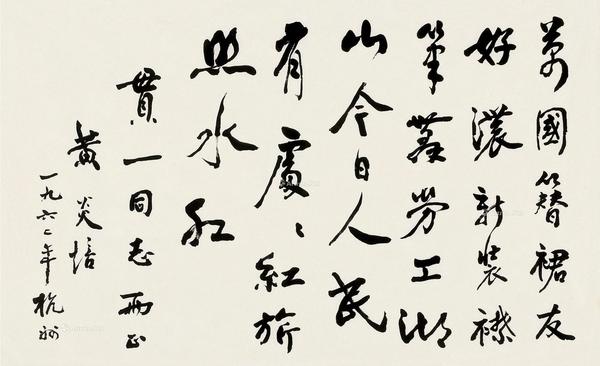 萬國簪裙友
好濃新裝襟
筆慕勞工湖
山今日人民
有處々紅旂
照水紅
貫一同志兩正
黃炎培
一九六二年杭州